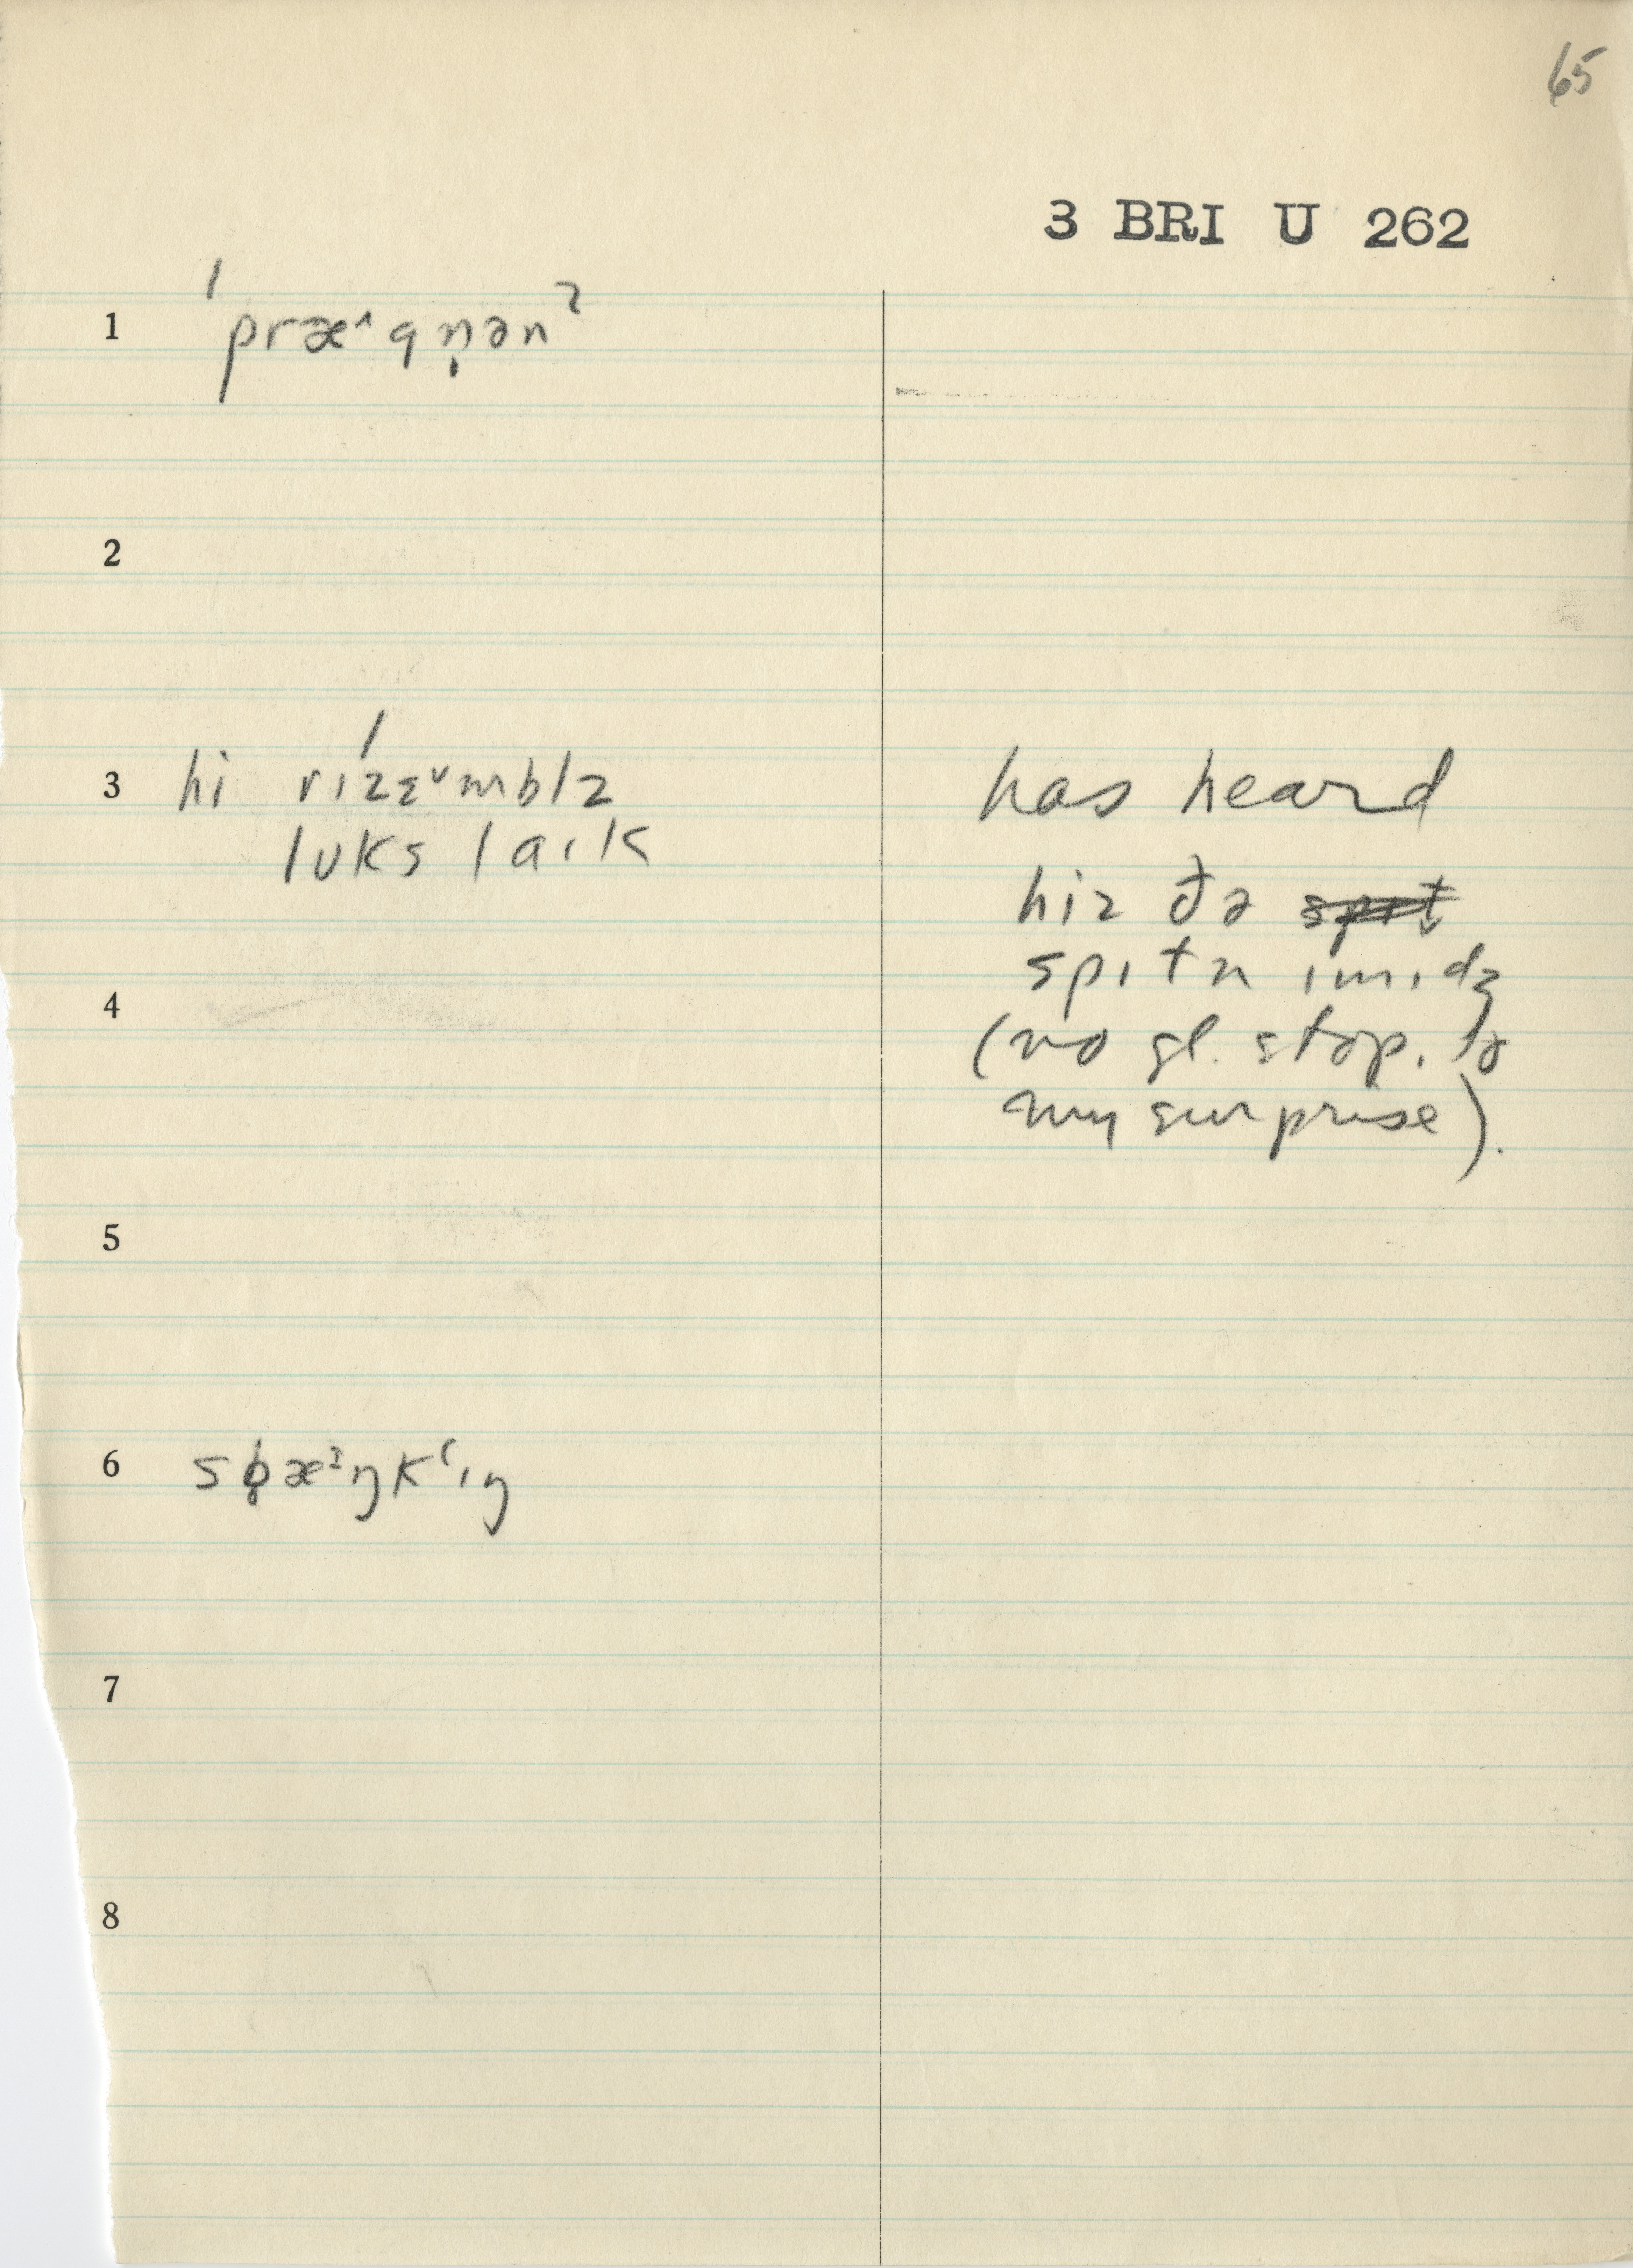 65
3 BRI U 262
1 ˈpræ˄gṇənˀ
2
3 hi rızɛ́˅mblz
lʊks laık
has heard
hiz ðə s̶p̶ı̶t̶
spıtn ımıdʒ
(no gl. stop. to
my surprise).
4
5
6 sb̥æᶦŋkʻıŋ
7
8